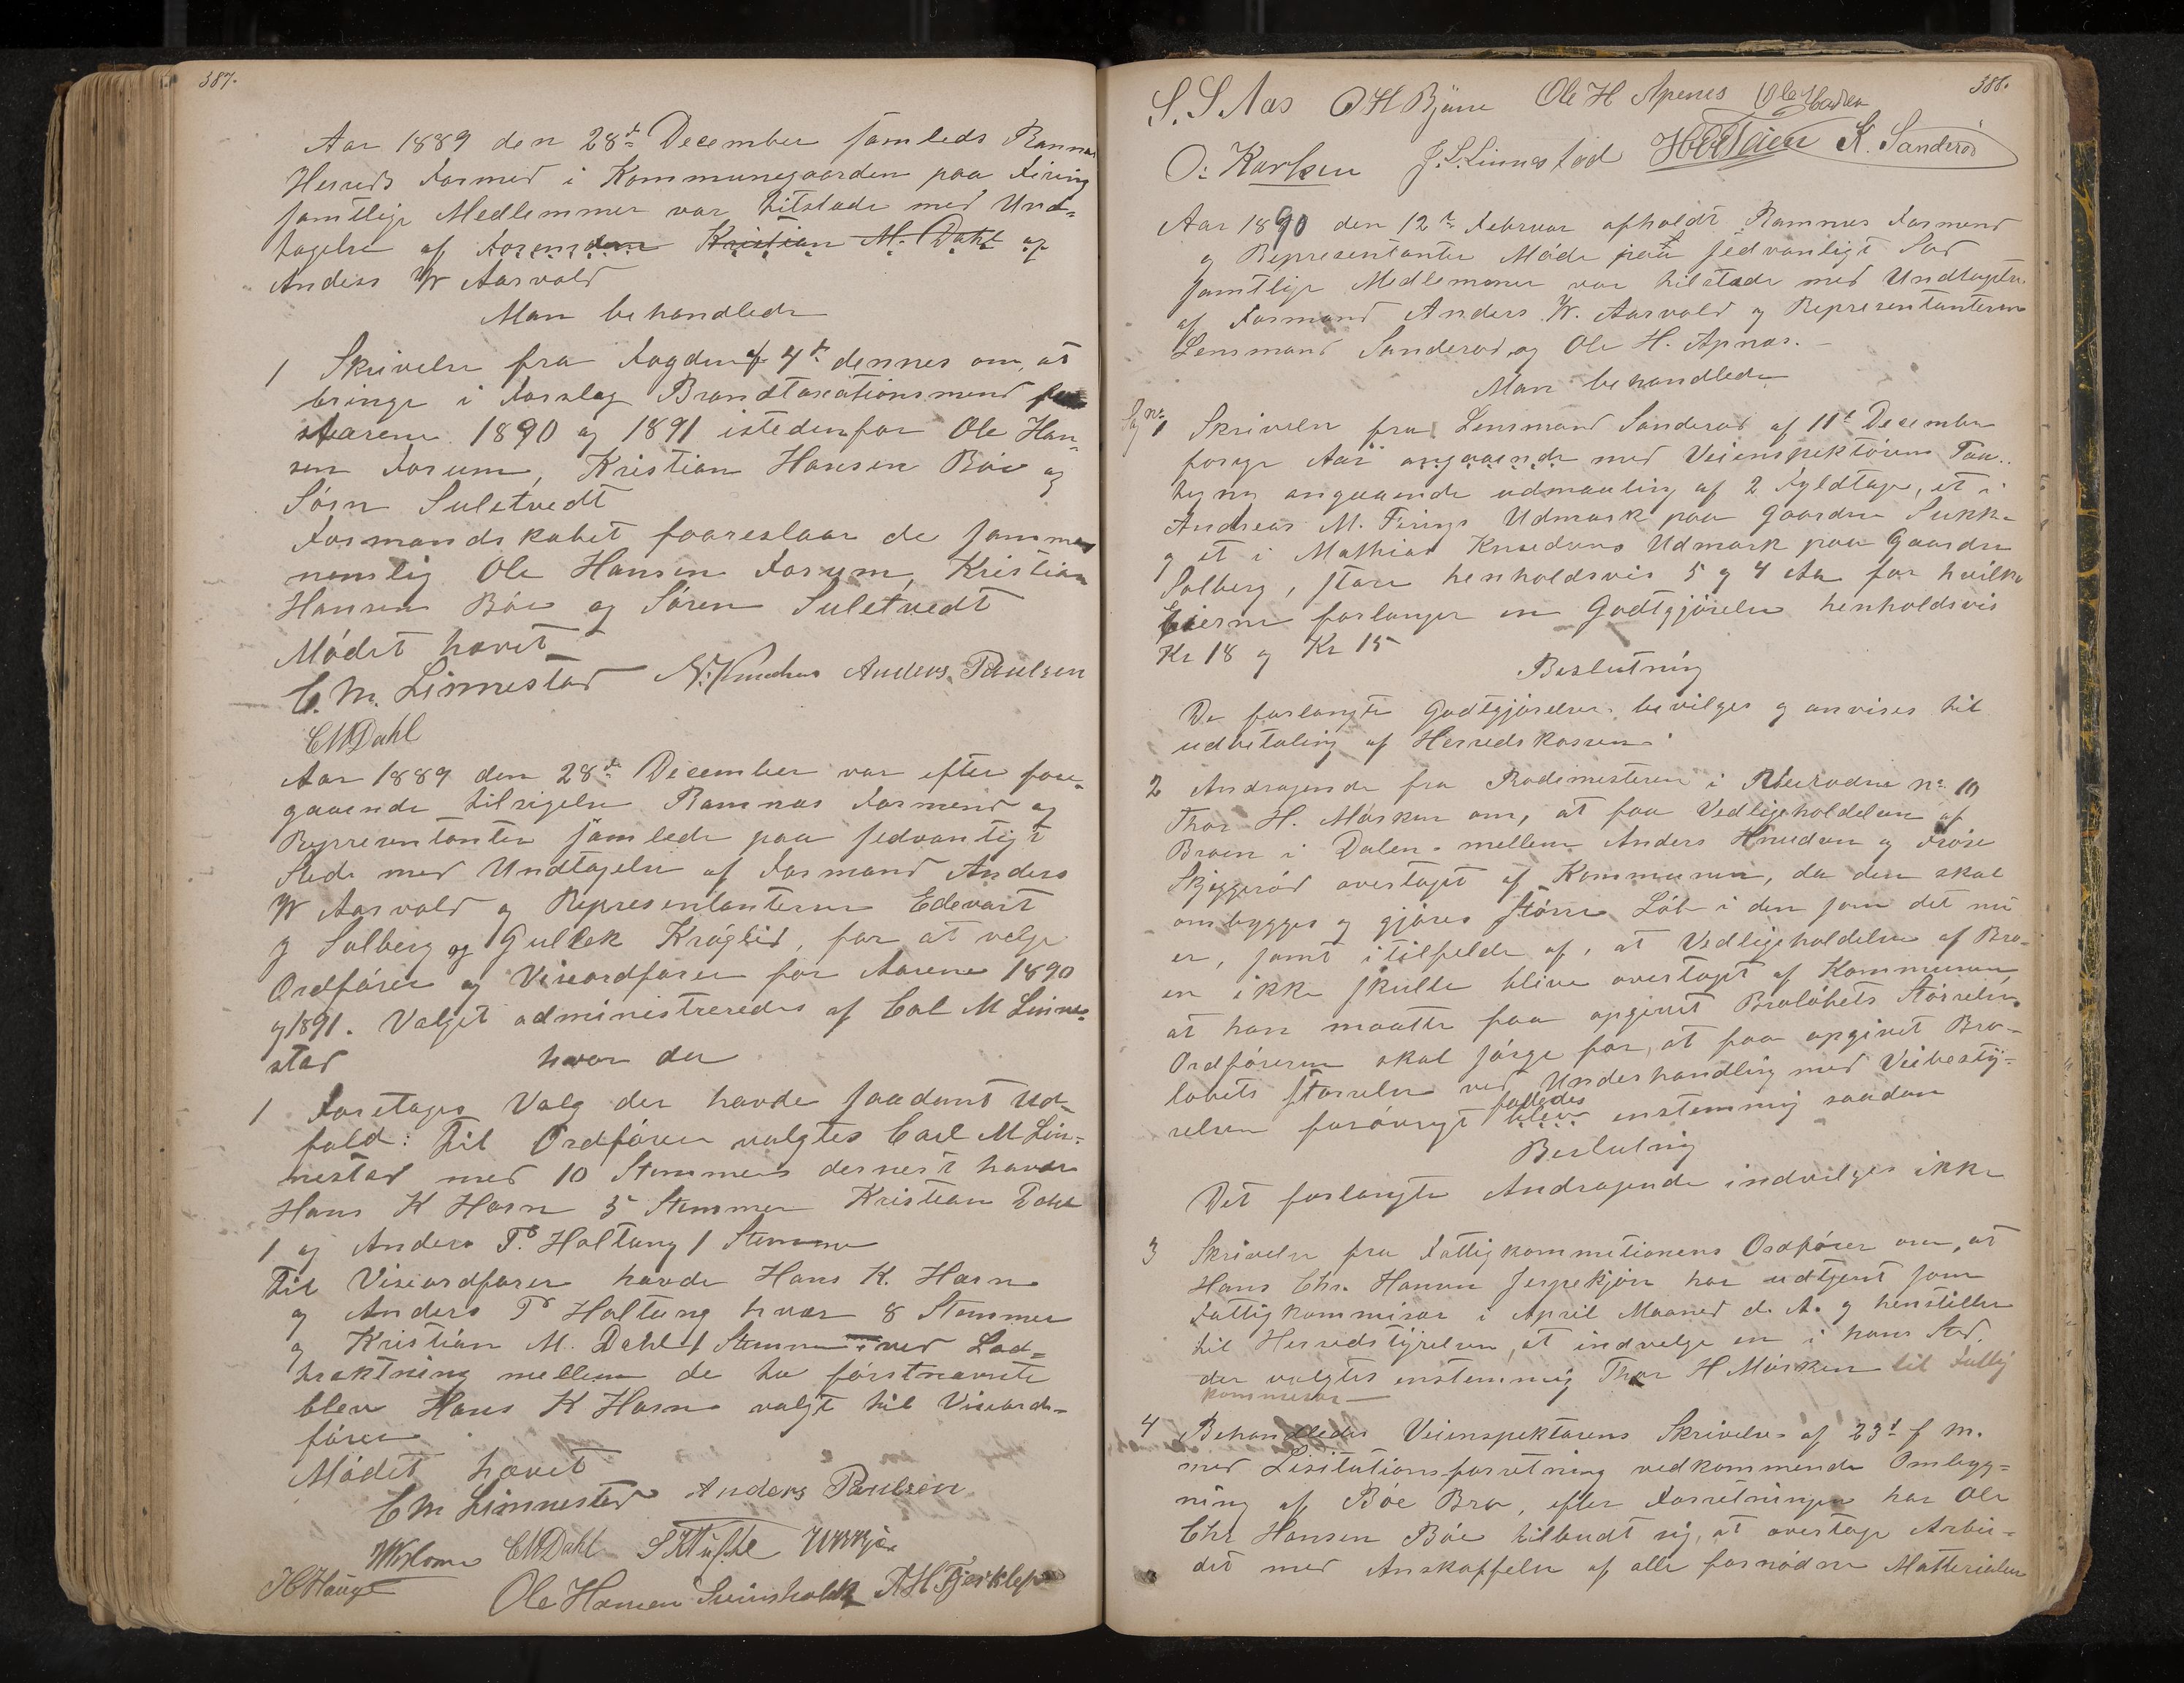 387.
Aar 1889 den 28de December samleds Ramnæs
Herreds Formend i Kommunegaarden paa Firing
samtlige Medlemmer var tilstede med Und-
tagelse af Formendene Kristian M. Dahl og
Anders W Aasvald
Man behandlede
1 Skrivelse fra Fogden af 4de dennes om, at
bringe i Forslag Brandtaxationsmend for
Aarene 1890 og 1891 istedenfor Ole Han-
sen Forum, Kristian Hansen Böe og
Sörn Suletvedt
Formandskabet foareslaar de samme
nemslig Ole Hansen Forum, Kristian
Hansen Böe og Sören Suletvedt
Mödet hævet
C. M. Linnestad N. Knudsen Anders Paulsen
CMDahl
Aar 1889 den 28de December var efter fore-
gaaende tilsigelse Ramnæs Formend og
Representanter samlede paa sedvanligt
Sted med Undtagelse af Formand Anders
W Aasvald og Representanterne Edevart
J Solberg og Gullek Kröglid, for at velge
Ordförer og Viseordförer for Aarene 1890
og 1891. Valget administreredes af Carl M Linne-
stad hvor der
1 Foretages Valg der havde saadant Ud-
fald: Til Ordförer valgtes Carl M Lin-
nestad med 10 Stemmer dernest havde
Hans K Horn 5 Stemmer Kristian Dahl
1 og Anders Ps Holtung 1 Stemme
Til Viseordförer havde Hans K. Horn
og Anders Ps Holtung hver 8 Stemmer
og Kristian M. Dahl 1 Stemme ved Lod-
trækning mellem de to förstnævnte
blev Hans K Horn valgt til Viseord-
förer
Mödet hævet
CM Linnestad Anders Paulsen
CMDahl
HHauge Ole Hansen
388.
S. S Aas O H Bjäne Ole H Apenes
O: Karlsen J. S. Linnestad K. Sanderöd
Aar 1890 den 12te Februar afholdt Ramnæs Formend
og Representanter Möde paa sedvanligt Sted
samtlige Medlemmer var tilstede med Undtagelse
af Formand Anders W. Aasvald og Representanterne
Lensmand Sanderöd og Ole H. Apnæs.
Man behandlede
Sag no 1 Skrivelse fra Lensmand Sanderöd af 11te December
forrige Aar angaaende med Veiinspektörens
angaaende udmaaling af 2 Fyldtage, et i
Andreas M. Firings Udmark paa Gaarden
og et i Mathias Knudsens Udmark paa Gaarden
Solberg, store henholdsvis 5 og 4 Ar for hvilke
Eierne forlanger en Godtgjörelse henholdsvis
Kr 18 og Kr 15
Beslutning
De forlangte Godtgjörelser bevilges og anvises til
udbetaling af Herredskassen
2 Andragende fra Rodemesteren i Veirodne no 10
Thor H. Mörken om, at faa Vedligeholdelsen af
Broen i Dalen mellem Anders Knudsen og
Skjeggeröd overtaget af Kommunen, da den skal
ombygges og gjöres större Löb i den som det nu
er, samt i tilfelde af, at Vedligeholdelsen af Bro-
en ikke skulle blive overtaget af Kommunen,
at han maatte faa opgivet Brolöbets Störrelse
Ordföreren skal sörge for, at faa opgivet Bro-
löbets Störrelse ved Underhandling med Veibesty-
relsen forövrigt fattedes blev enstemmig saadan
Beslutning
Det forlangte Andragende indvilges ikke
3 Skrivelse fra Fattigkommitionens Ordförer om, at
Hans Chr. Hansen Jerpekjön har udtjent som
Fattigkommisær i April Maaned d. A. og henstiller
til Herredstyrelsen, at indvelge en i hans Sted.
der valgtes enstemmig Thor H Mörken til Fattig
kommisær
4 Behandledes Veiinspektörens Skrivelse af 23de f M.
med Lisitationsforretning vedkommende Ombyg-
ning af Böe Bro, efter Forretningen har Ole
Chr Hansen Böe tilbudt sig, at overtage Arbei-
det med Anskaffelse af alle fornödne Matterialer